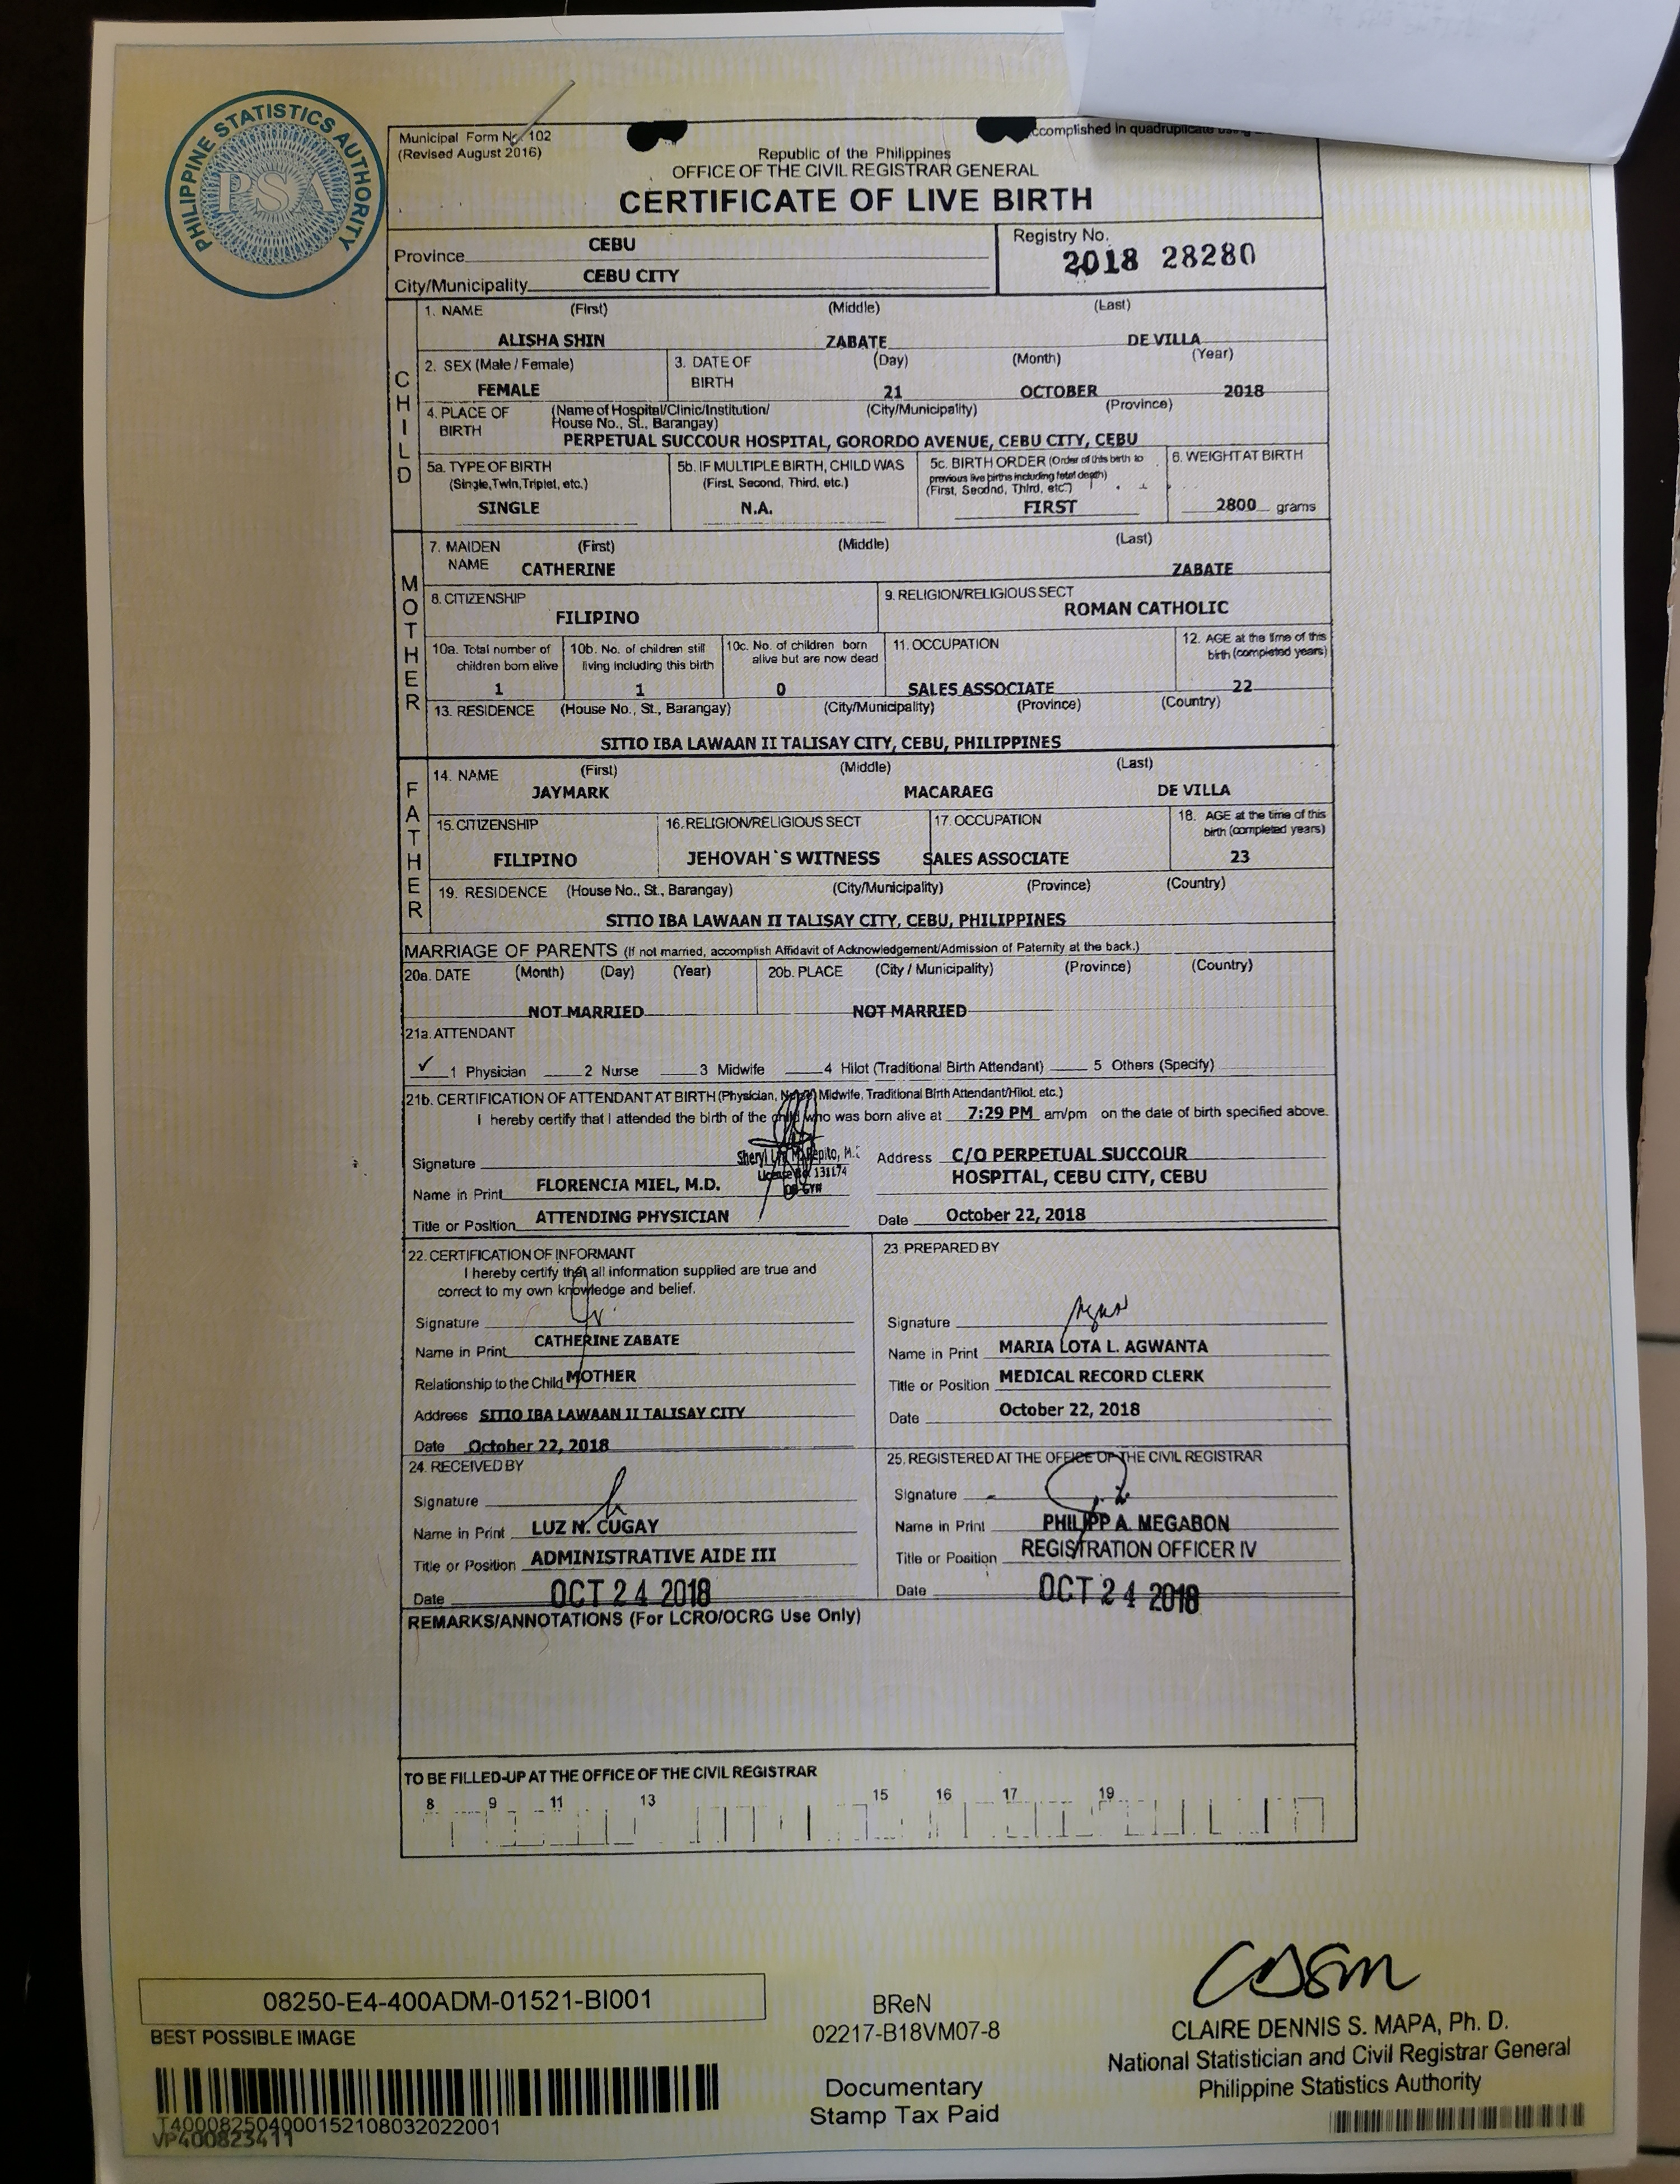 PHILIPPINE STATISTICS AUTHORITY
PSA
Municipal Form No. 102
(Revised August 2016)
ccomplished in quadruplicate using
Republic of the Philippines
OFFICE OF THE CIVIL REGISTRAR GENERAL
CERTIFICATE OF LIVE BIRTH
Province CEBU
City/Municipality CEBU CITY
Registry No.
2018 28280
CHILD
1. NAME (First) (Middle) (Last)
ALISHA SHIN ZABATE DE VILLA
2. SEX (Male / Female) 3. DATE OF BIRTH (Day) (Month) (Year)
FEMALE 21 OCTOBER 2018
4. PLACE OF BIRTH (Name of Hospital/Clinic/Institution/ House No., St., Barangay) (City/Municipality) (Province)
PERPETUAL SUCCOUR HOSPITAL, GORORDO AVENUE, CEBU CITY, CEBU
5a. TYPE OF BIRTH (Single,Twin,Triplet, etc.)
SINGLE
5b. IF MULTIPLE BIRTH, CHILD WAS (First, Second, Third, etc.)
N.A.
5c. BIRTH ORDER (Order of this birth to previous live births including fetal death) (First, Second, Third, etc.)
FIRST
6. WEIGHT AT BIRTH
2800 grams
MOTHER
7. MAIDEN NAME (First) (Middle) (Last)
CATHERINE ZABATE
8. CITIZENSHIP
FILIPINO
9. RELIGION/RELIGIOUS SECT
ROMAN CATHOLIC
10a. Total number of children born alive
1
10b. No. of children still living including this birth
1
10c. No. of children born alive but are now dead
0
11. OCCUPATION
SALES ASSOCIATE
12. AGE at the time of this birth (completed years)
22
13. RESIDENCE (House No., St., Barangay) (City/Municipality) (Province) (Country)
SITIO IBA LAWAAN II TALISAY CITY, CEBU, PHILIPPINES
FATHER
14. NAME (First) (Middle) (Last)
JAYMARK MACARAEG DE VILLA
15. CITIZENSHIP
FILIPINO
16. RELIGION/RELIGIOUS SECT
JEHOVAH`S WITNESS
17. OCCUPATION
SALES ASSOCIATE
18. AGE at the time of this birth (completed years)
23
19. RESIDENCE (House No., St., Barangay) (City/Municipality) (Province) (Country)
SITIO IBA LAWAAN II TALISAY CITY, CEBU, PHILIPPINES
MARRIAGE OF PARENTS (If not married, accomplish Affidavit of Acknowledgement/Admission of Paternity at the back.)
20a. DATE (Month) (Day) (Year) 20b. PLACE (City / Municipality) (Province) (Country)
NOT MARRIED NOT MARRIED
21a. ATTENDANT
✓ 1 Physician 2 Nurse 3 Midwife 4 Hilot (Traditional Birth Attendant) 5 Others (Specify)
21b. CERTIFICATION OF ATTENDANT AT BIRTH (Physician, Nurse, Midwife, Traditional Birth Attendant/Hilot. etc.)
I hereby certify that I attended the birth of the child who was born alive at 7:29 PM am/pm on the date of birth specified above.
Signature
Sheryl
Pepito, M.D.
License No. 131174
OB-GYN
Name in Print FLORENCIA MIEL, M.D.
Title or Position ATTENDING PHYSICIAN
Address C/O PERPETUAL SUCCOUR
HOSPITAL, CEBU CITY, CEBU
Date October 22, 2018
22. CERTIFICATION OF INFORMANT
I hereby certify that all information supplied are true and
correct to my own knowledge and belief.
Signature
Name in Print CATHERINE ZABATE
Relationship to the Child MOTHER
Address SITIO IBA LAWAAN II TALISAY CITY
Date October 22, 2018
23. PREPARED BY
Signature
Name in Print MARIA LOTA L. AGWANTA
Title or Position MEDICAL RECORD CLERK
Date October 22, 2018
24. RECEIVED BY
Signature
Name in Print LUZ N. CUGAY
Title or Position ADMINISTRATIVE AIDE III
Date OCT 24 2018
25. REGISTERED AT THE OFFICE OF THE CIVIL REGISTRAR
Signature
Name in Print PHILIPP A. MEGABON
Title or Position REGISTRATION OFFICER IV
Date OCT 24 2018
REMARKS/ANNOTATIONS (For LCRO/OCRG Use Only)
TO BE FILLED-UP AT THE OFFICE OF THE CIVIL REGISTRAR
8 9 11 13 15 16 17 19
08250-E4-400ADM-01521-BI001
BEST POSSIBLE IMAGE
T400082504000152108032022001
VP400823411
BReN
02217-B18VM07-8
Documentary
Stamp Tax Paid
CLAIRE DENNIS S. MAPA, Ph. D.
National Statistician and Civil Registrar General
Philippine Statistics Authority